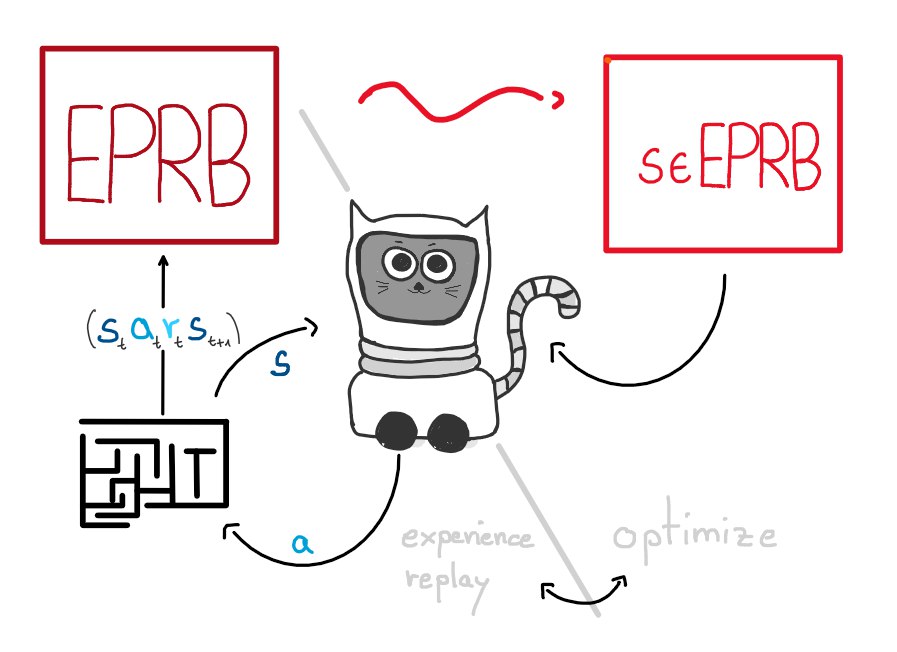 EPRB
sϵEPRB
(sₜaₜrₜsₜ₊₁)
s
T
a
experience
replay
optimize